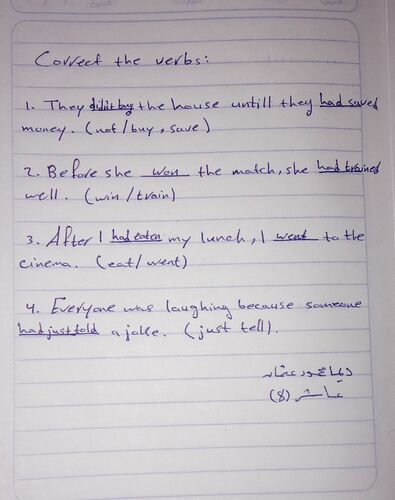 Correct the verbs:
1. They didn't buy the house untill they had saved
money. (not/buy, save)
2. Before she won the match, she had trained
well. (win/train)
3. After I had eaten my lunch, I went to the
cinema. (eat/went)
4. Everyone was laughing because someone
had just told a joke. (just tell).
عاشر (8)